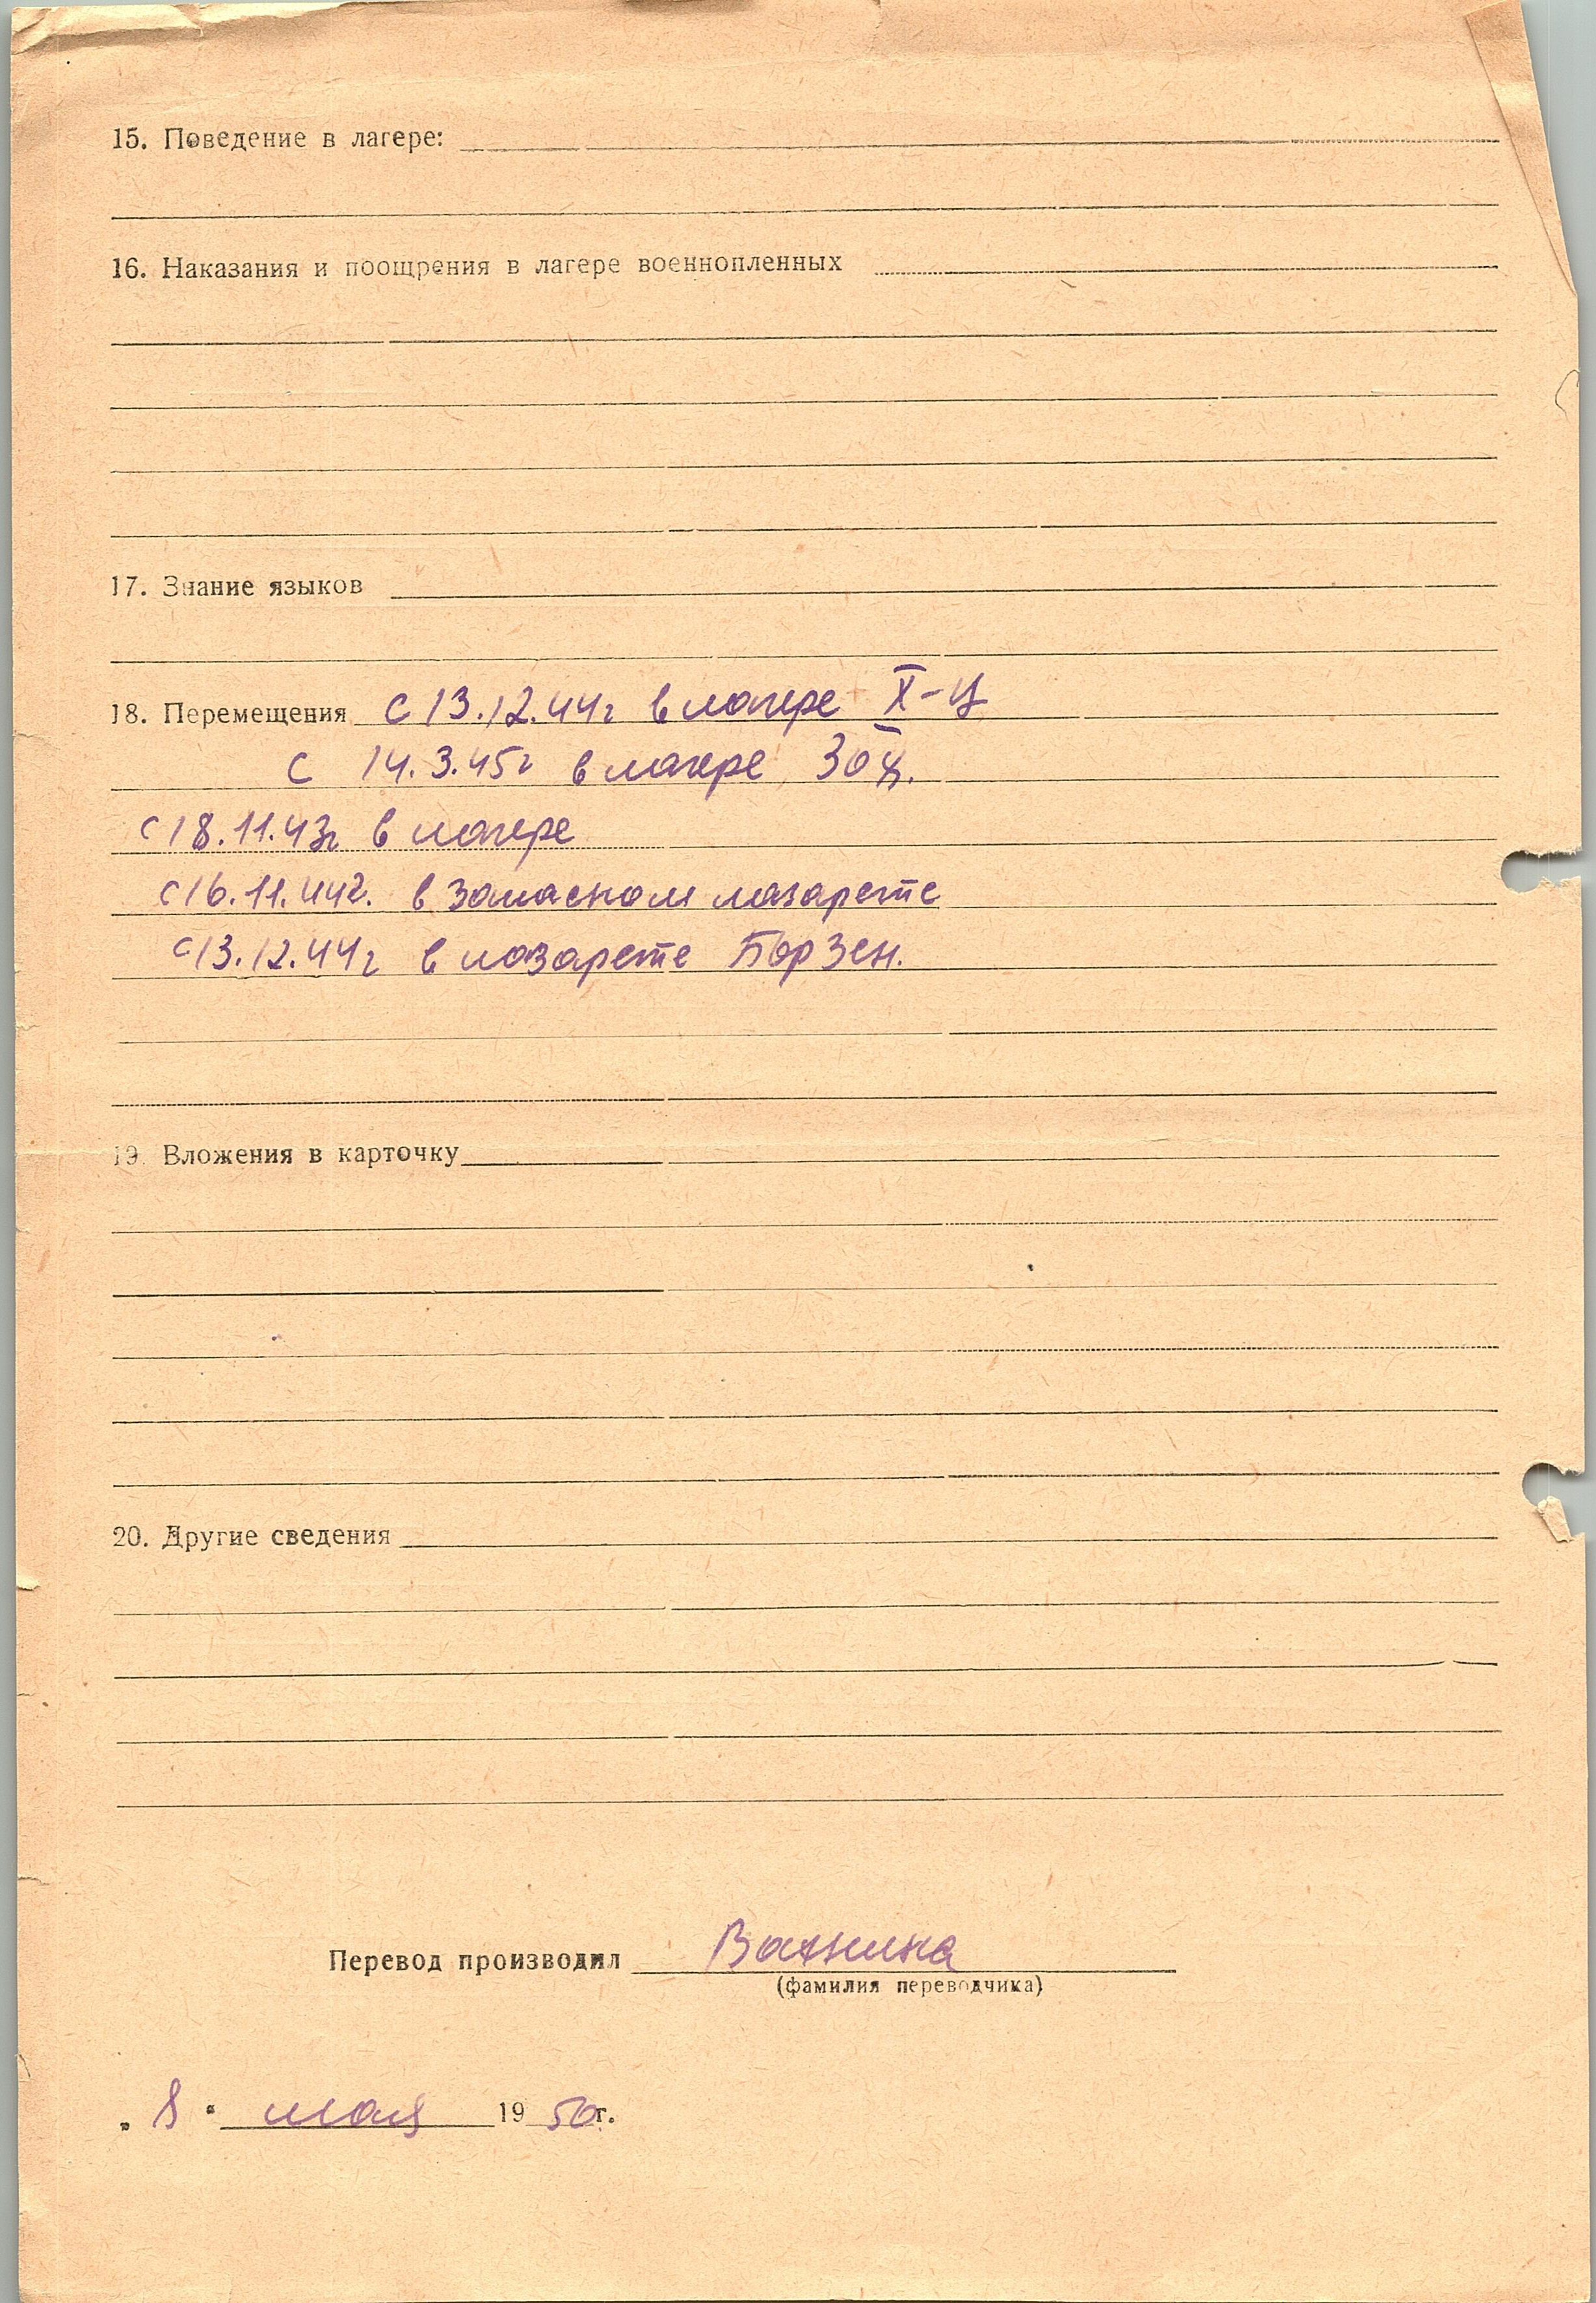 15. Поведение в лагере:
16. Наказания и поощрения в лагере военнопленных
17. Знание языков
18. Перемещения с 13.12.44г в лагере X-Ц
с 14.3.45г в лагере
с 18.11.43г в лагере
с 16.11.44г. в запасном лазарете
с 13.12.44г в лазарете Борзен.
19. Вложения в карточку
20. Другие сведения
Перевод производил
(фамилия переводчика)
„ 8 " мая 1950г.